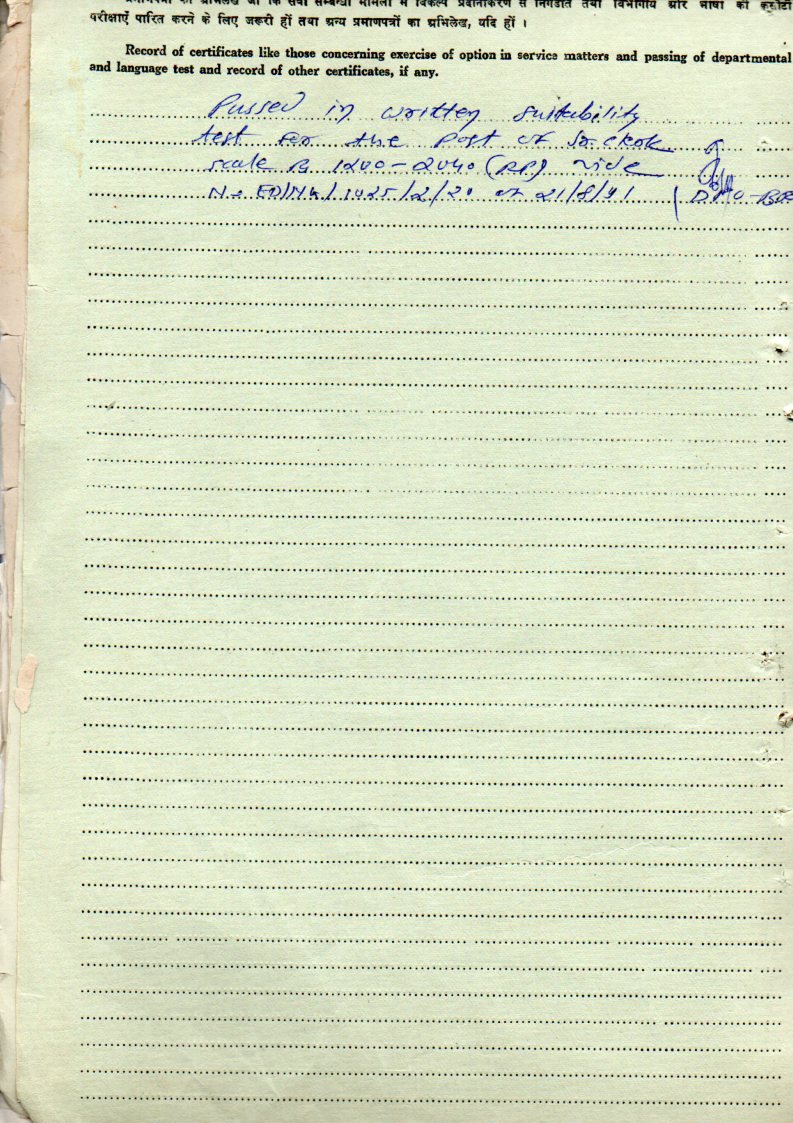 प्रमाणपत्रों का अभिलेख जो कि सेवा सम्बन्धी मामलों में विकल्प प्रदानीकरण से निगडीत तथा विभागीय और भाषा की कसोटी
परीक्षाएँ पारित करने के लिए जरूरी हों तथा अन्य प्रमाणपत्रों का अभिलेख, यदि हों ।
Record of certificates like those concerning exercise of option in service matters and passing of departmental
and language test and record of other certificates, if any.
Passed in written suitability
test for the Post of Sr. Clerk
scale Rs 1200-2040 (RP) vide
No ED/ 1025/2/20 of 21/8/91